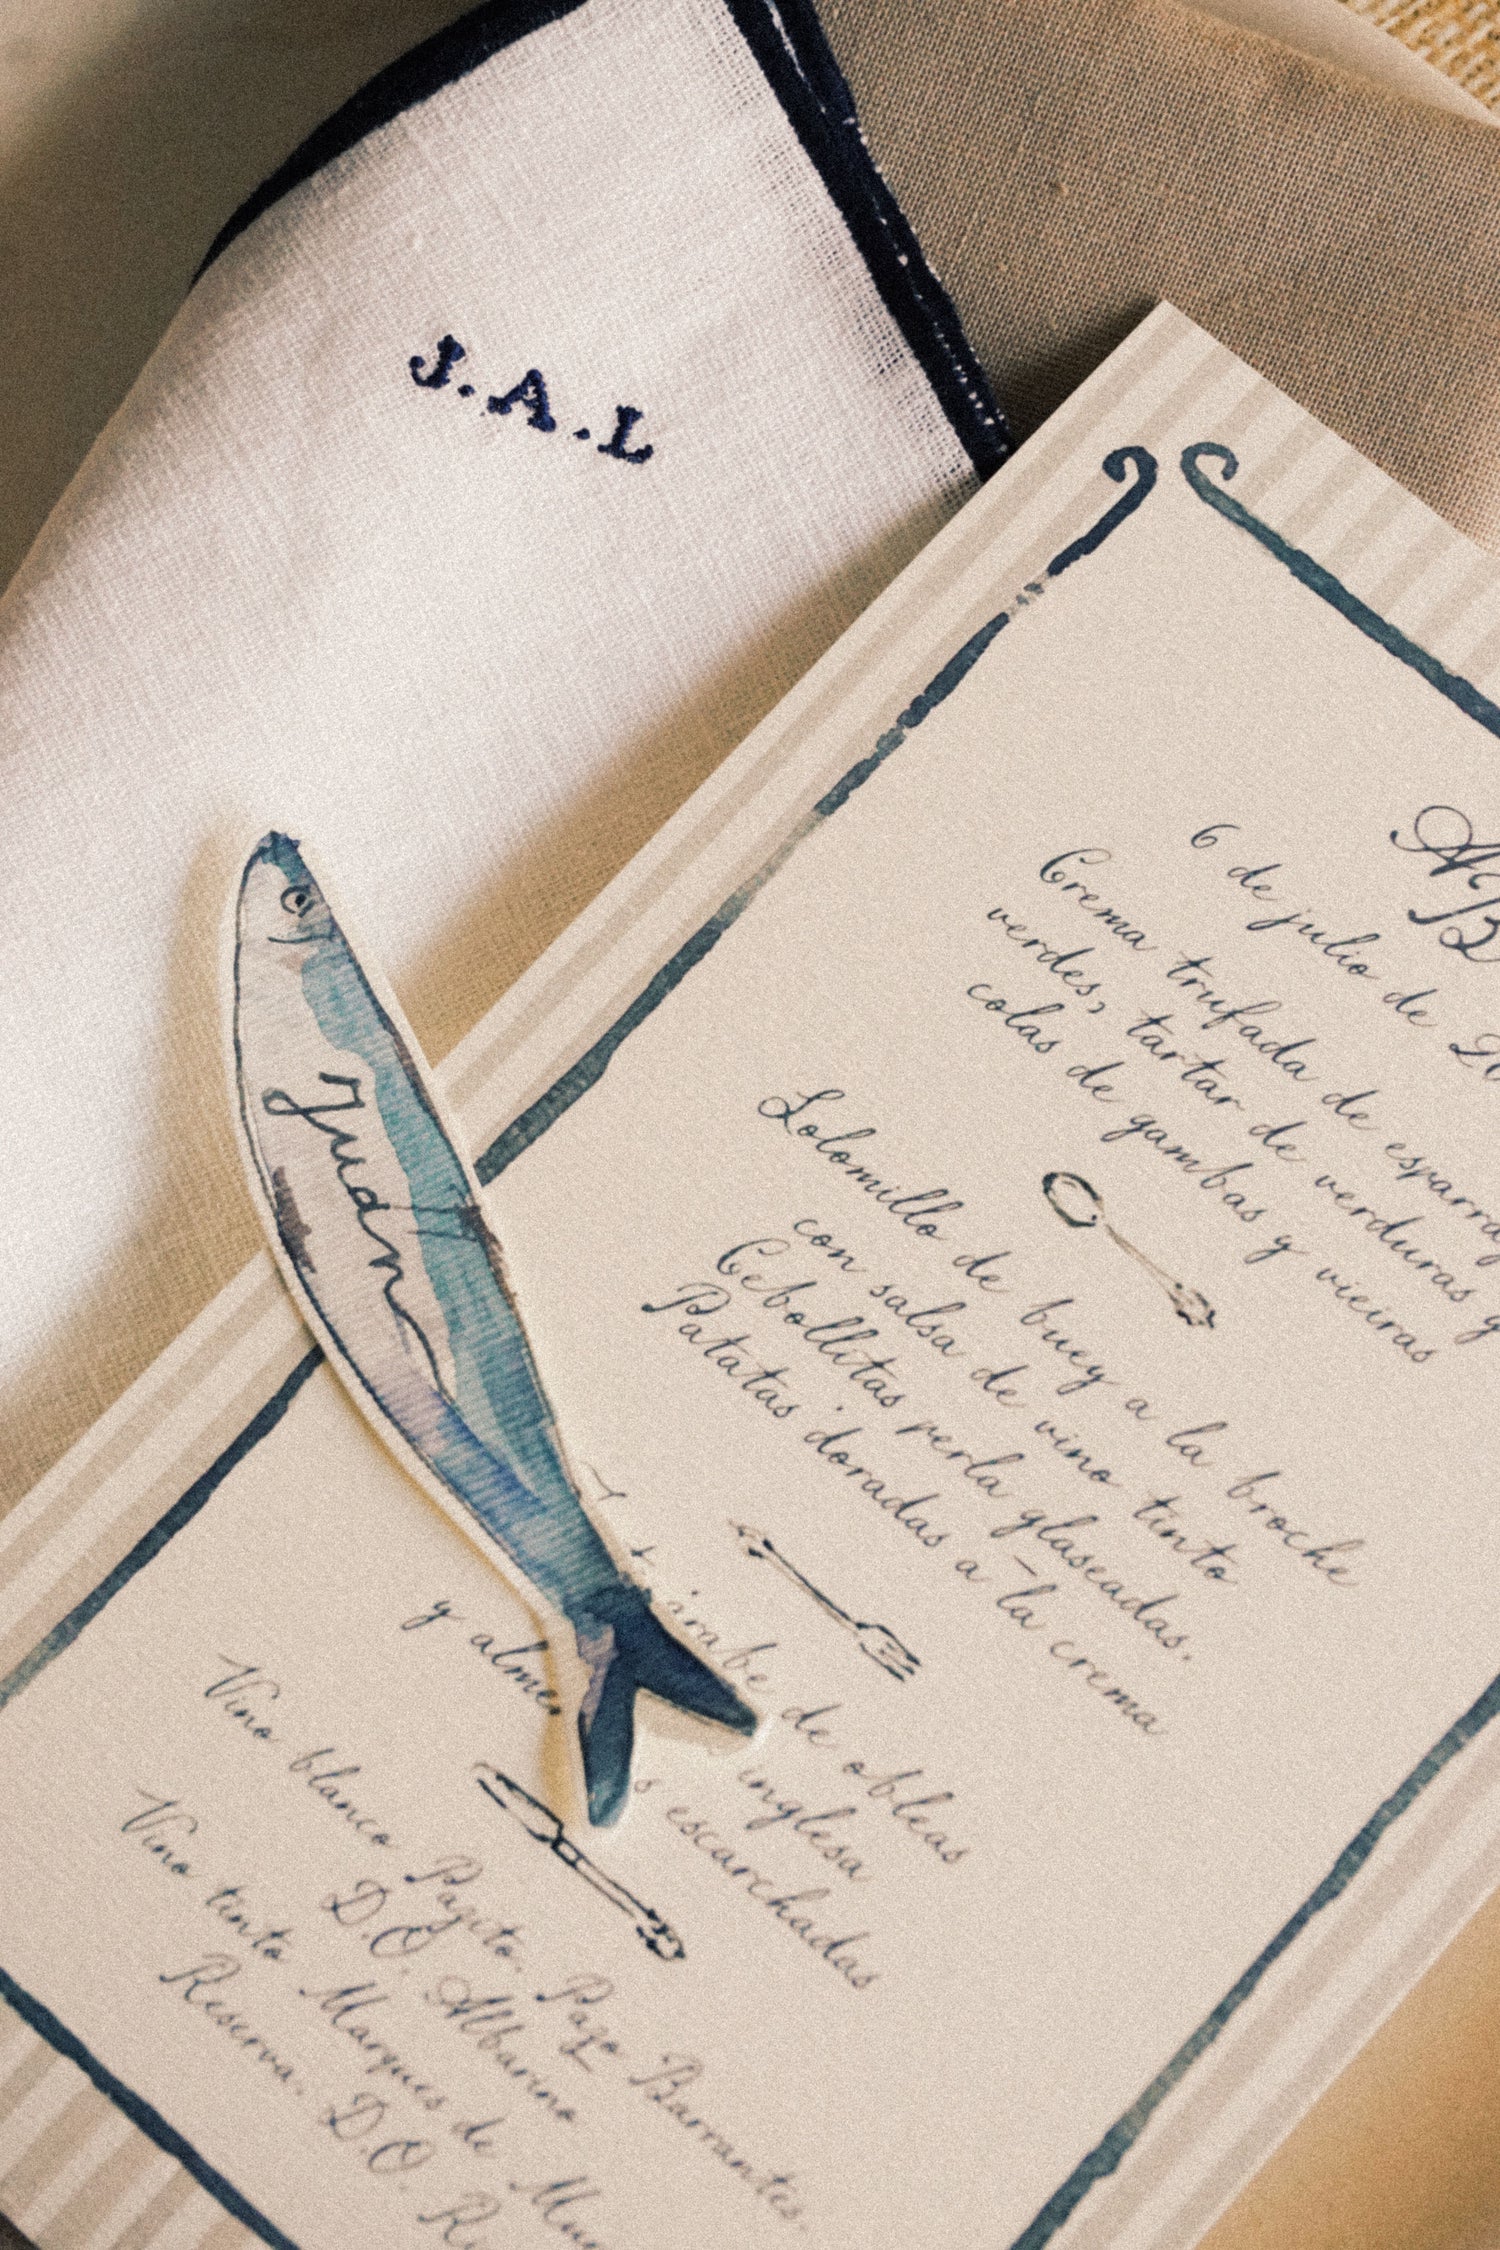 J.A.L
Juan
A
B
6 de julio de
Crema trufada de
verdes, tartar de verduras y
colas de gambas y vieiras
Lolomillo de buey a la broche
con salsa de vino tinto
Cebollitas perla glaseadas.
Patatas doradas a la crema
de obleas
inglesa
y escarchadas
Vino blanco Pazito. Pazo Barrantes.
D.O. Albarino
Vino tinto Marques de
Reserva. D.O.